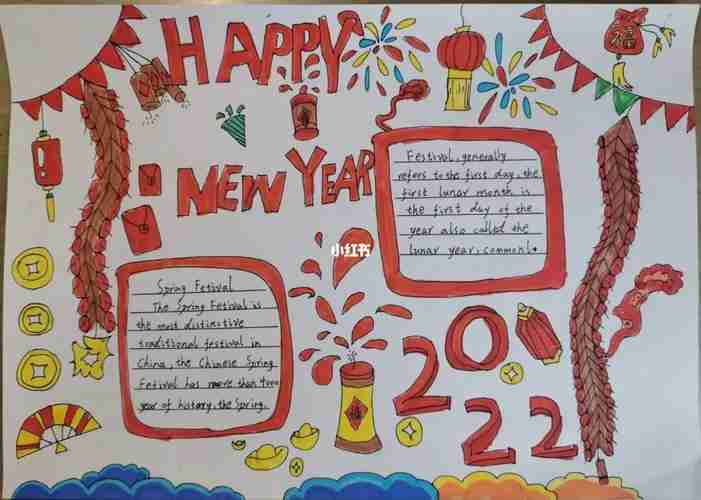 HAPPY
福
NEW YEAR
Festival, generally
refers to the first day, the
first lunar month is
the first day of the
year also called the
lunar year, common
小红书
Spring Fetival
The Spring Fetival is
the most distinctive
traditional festival in
China, the Chinese Spring
Fetival has more than
year of history, the Spring.
2022